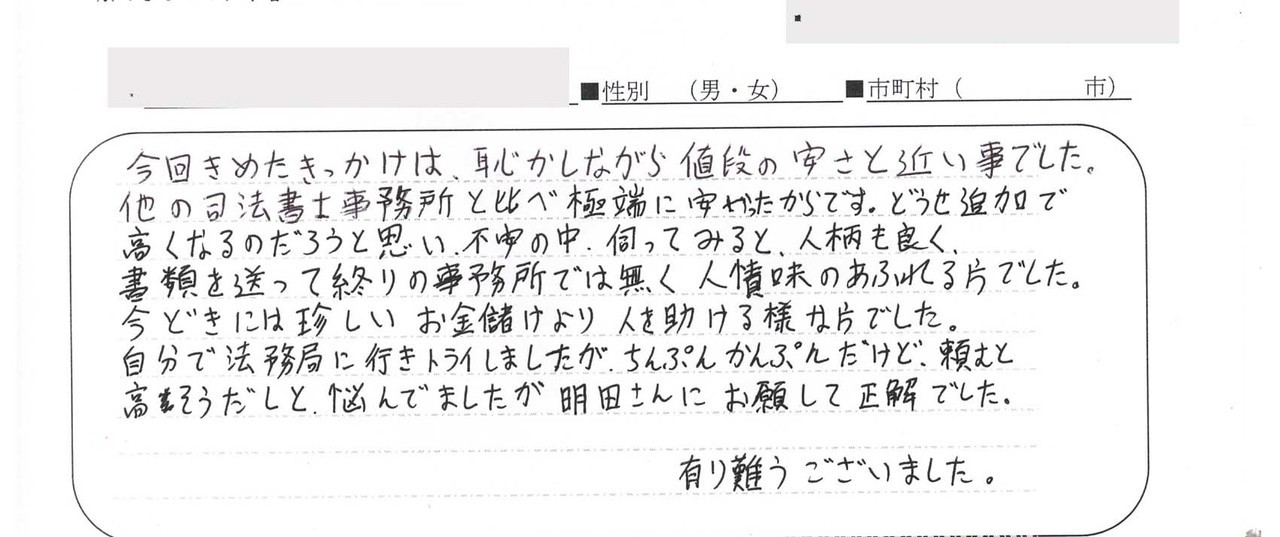 ■性別 （男・女） ■市町村（ 市）
今回きめたきっかけは、恥かしながら 値段の 安さと近い事でした。
他の司法書士事務所と比べ極端に安かったからです。どうせ追加で
高くなるのだろうと思い、不安の中、伺ってみると、人柄も良く、
書類を送って終りの事務所では無く 人情味のあふれてる片でした。
今どきには珍しい お金儲けより 人を助ける様な片でした。
自分で法務局に行きトライしましたが、ちんぷんかんぷんだけど、頼むと
高そうだしと、悩んでましたが 明田さんに お願して 正解でした。
有り難うございました。